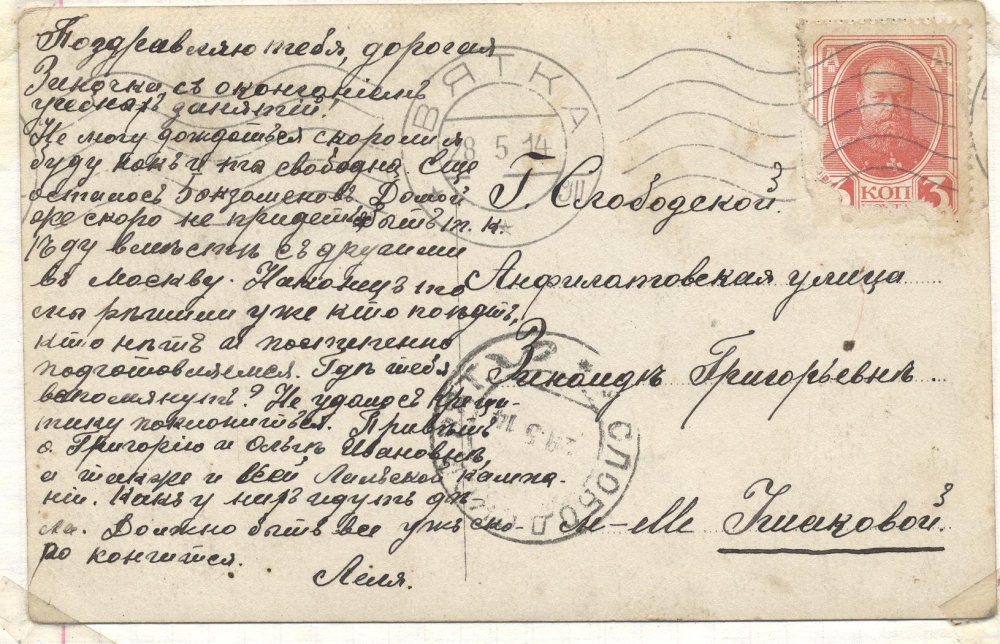 Поздравляю тебя, дорогая
Зиночка, съ окончаніемъ
учебныхъ занятій.
Не могу дождаться скоро ли я
буду какъ и ты свободна. Еще
осталось 5 экзаменовъ. Домой
же скоро не придется быть т. к.
ѣду вмѣстѣ съ другими
въ Москву. Наконецъ то
мы рѣшили уже кто поѣдетъ,
кто нѣтъ и постепенно
подготовляемся. Гдѣ тебя
вспомянуть? Не удалось
поклониться. Привѣтъ
о. Григорію и Ольгѣ Ивановнѣ,
а также и всей Лальской кампа-
ніи. Какъ у нихъ идутъ дѣ-
ла. Должно быть все уже ско-
ро кончится.
Леля.
ВЯТКА
8 5 14
Г. Слободской.
Анфилатовская улица
Зинаидѣ Григорьевнѣ.
М-ме
СЛОБОДСК
ВЯТ
29 5 14
3 КОП 3